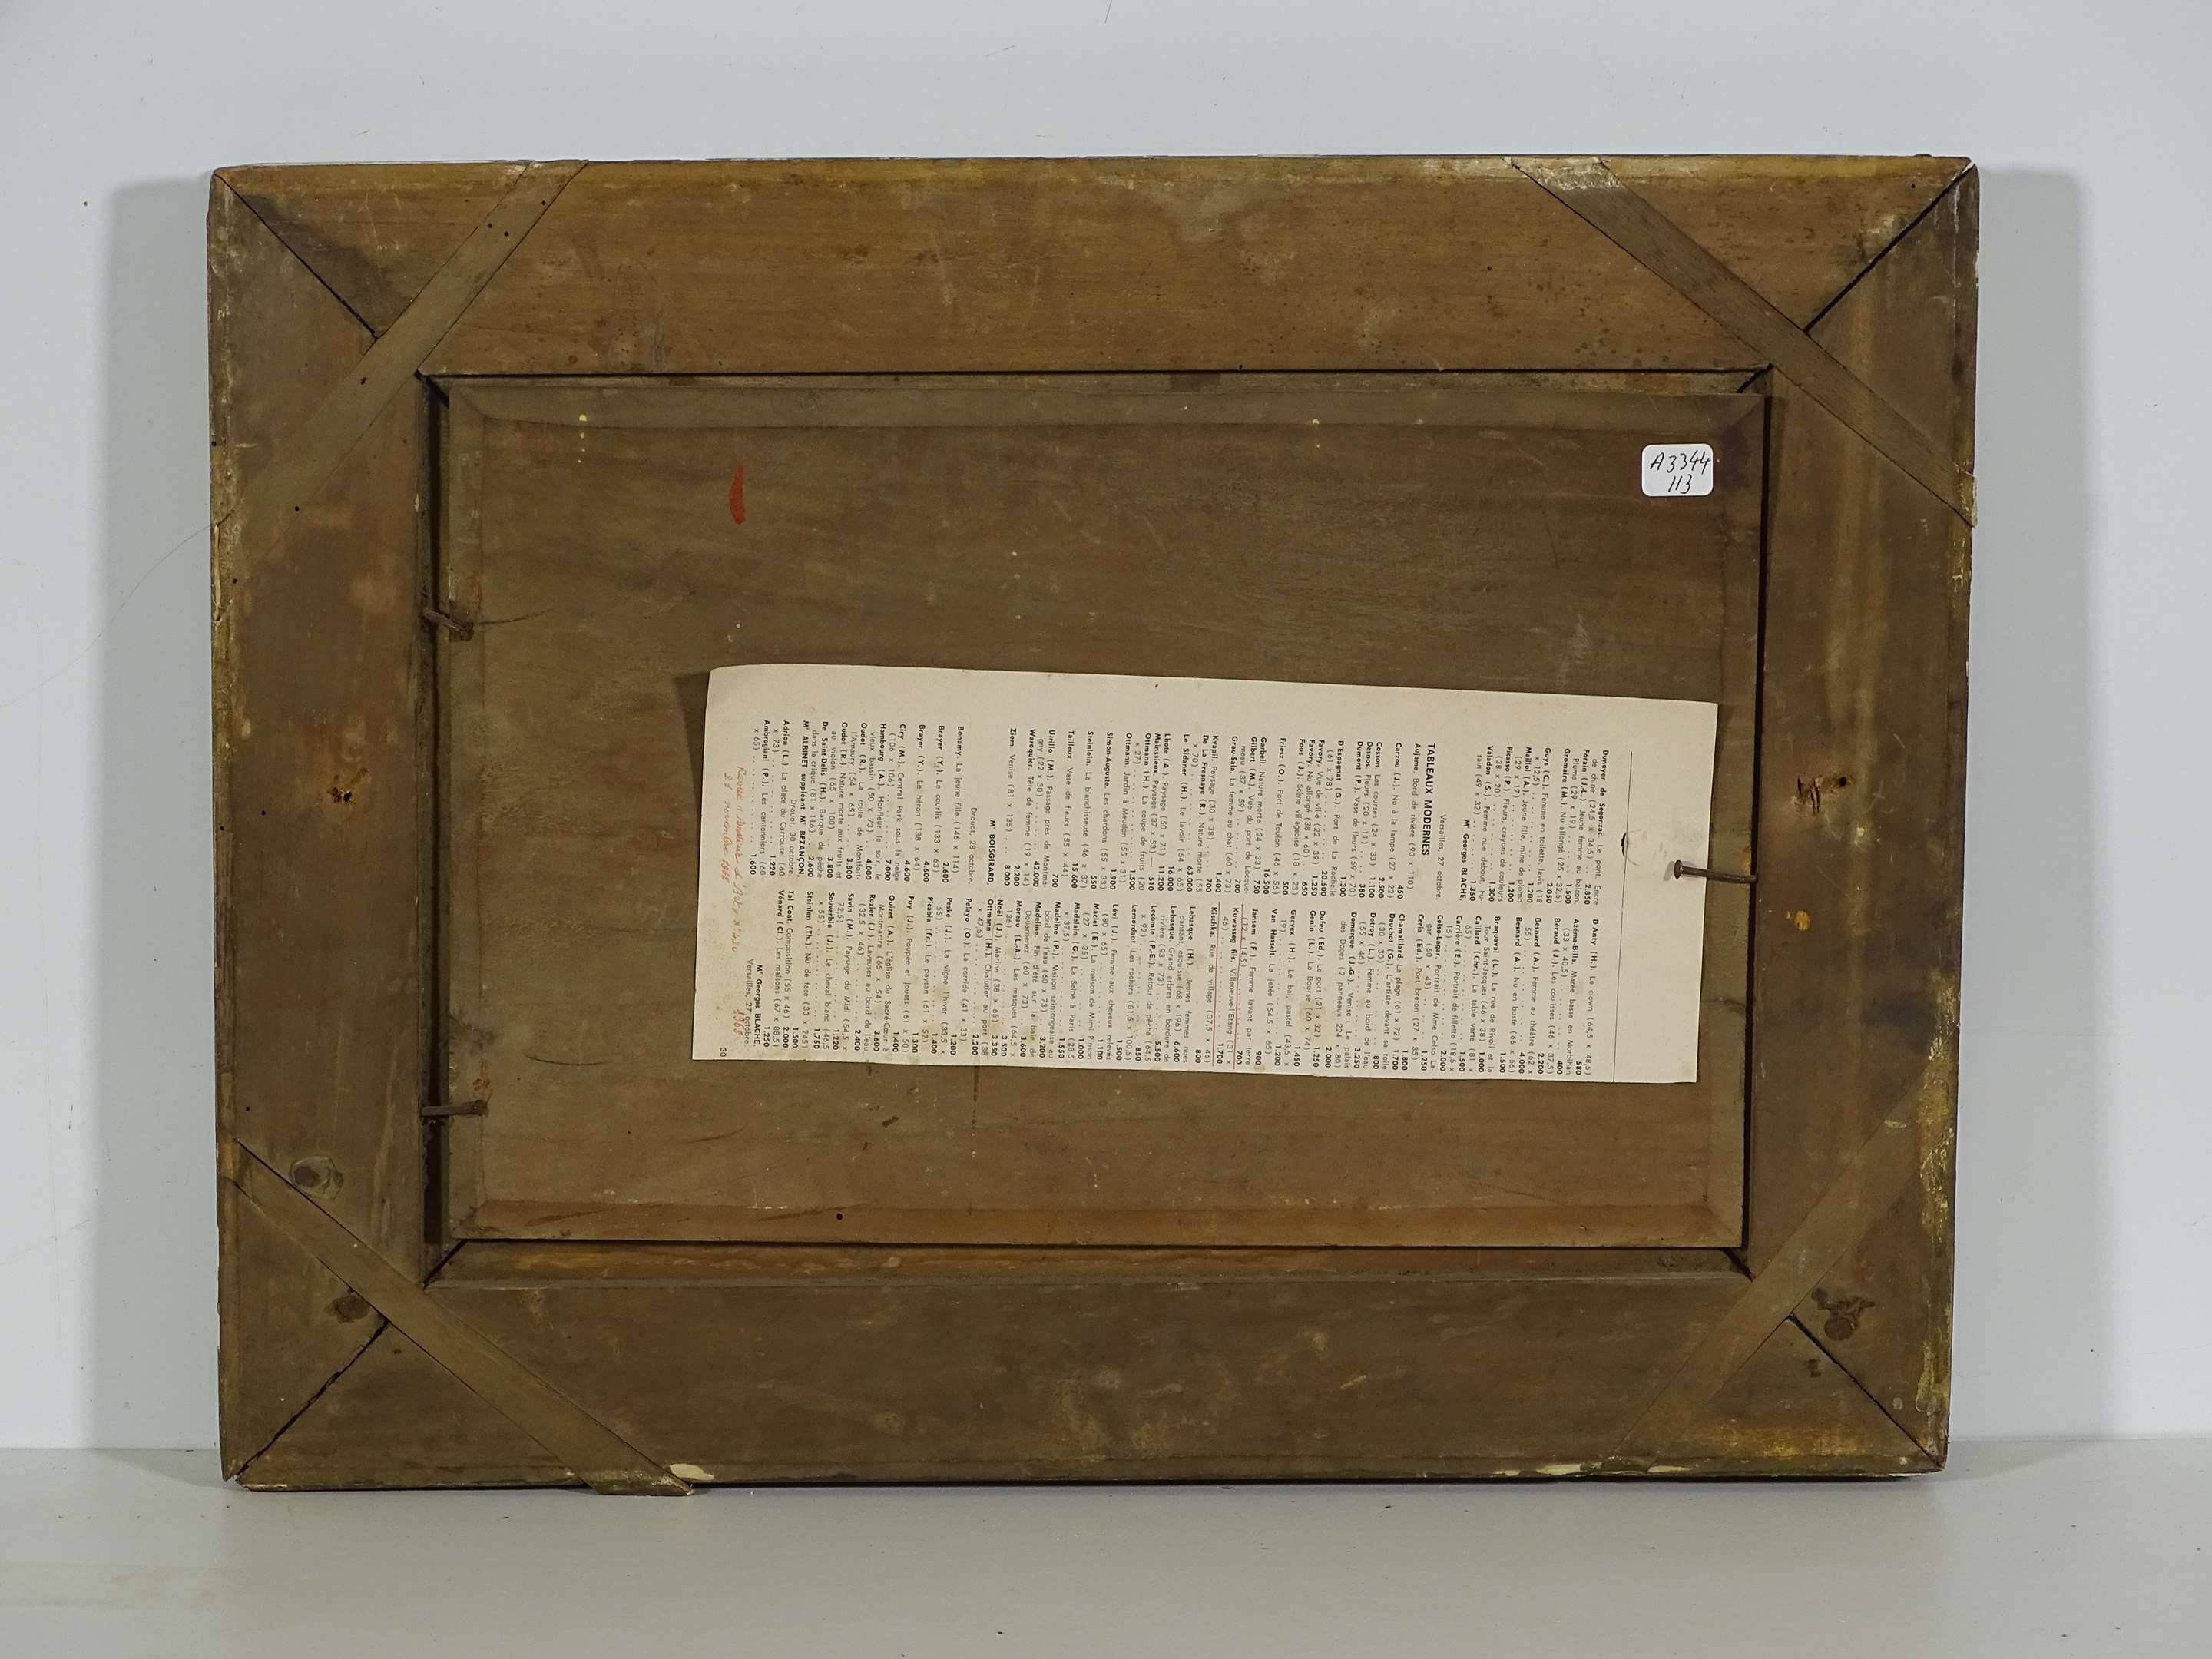 A3344
113
Dunoyer de Segonzac. Le pont. Encre
de chine (24,5 x 34,5) .. 2.850
Forain (J.-L.). Jeune femme au balcon.
Plume (29 x 19) .... 1.500
Gromaire (M.). Nu allongé (25 x 32,5)
2.050
Guys (C.). Femme en toilette, lavis (18
x 12,5) .... 1.200
Maillol (A.). Jeune fille, mine de plomb
(29 x 17) .... 1.200
Picasso (P.). Fleurs, crayons de couleurs
(38 x 20) .... 1.300
Valadon (S.). Femme nue debout. Fu-
sain (49 x 32) .... 1.350
Mᵉ Georges BLACHE,
Versailles, 27 octobre.
TABLEAUX MODERNES
Aujame. Bord de rivière (90 x 110)
450
Carzou (J.). Nu à la lampe (27 x 22)
2.500
Cosson. Les courses (24 x 33). 1.100
Desnos. Fleurs (20 x 11) .... 380
Dumont (P.). Vase de fleurs (59 x 70)
1.300
D'Espagnat (G.). Port de La Rochelle
(61 x 78) .... 20.500
Favory. Vue de ville (22 x 39). 1.250
Favory. Nu allongé (38 x 60). 650
Fous (J.). Scène villageoise (18 x 23)
500
Friesz (O.). Port de Toulon (46 x 56)
16.500
Garbell. Nature morte (24 x 33) 750
Gilbert (M.). Vue du port de Locque-
meau (37 x 59) .... 700
Grau-Sala. La femme au chat (60 x 73)
1.400
Kvapil. Paysage (30 x 38) .... 700
De La Fresnaye (R.). Nature morte (55
x 70) .... 63.000
Le Sidaner (H.). Le lavoir (54 x 65)
16.000
Lhote (A.). Paysage (50 x 71) 11.200
Mainssieux. Paysage (37 x 53) — 510
Ottmann (H.). La coupe de fruits (20
x 27) .... 1.500
Ottmann. Jardin à Meudon (55 x 31)
1.900
Simon-Auguste. Les chardons (55 x 33)
550
Steinlein. La blanchisseuse (46 x 37)
15.600
Tailleux. Vase de fleurs (55 x 44)
700
Utrillo (M.). Passage près de Montma-
gny (22 x 30) .... 42.000
Waroquier. Tête de femme (19 x 14)
2.200
Ziem. Venise (81 x 135) .... 8.000
Mᵉ BOISGIRARD,
Drouot, 28 octobre.
Bonamy. La jeune fille (146 x 114)
2.600
Brayer (Y.). Le courlis (133 x 63)
4.600
Brayer (Y.). Le héron (138 x 64)
4.600
Ciry (M.). Central Park sous la neige
(106 x 106) .... 7.000
Hambourg (A.). Honfleur le soir, le
vieux bassin (50 x 73) .. 4.000
Oudot (R.). La route de Montfort-
l'Amaury (54 x 65) .... 3.800
Oudot (R.). Nature morte aux fruits et
au violon (65 x 100) .. 3.800
De Saint-Delis (H.). Barque de pêche
dans la crique (81 x 116) 2.600
Mᵉ ALBINET suppléant Mᵉ BEZANÇON,
Drouot, 30 octobre.
Adrion (L.). La place du Carrousel (60
x 73) .... 1.220
Ambrogiani (P.). Les cantonniers (60
x 65) .... 1.600
D'Anty (H.). Le clown (64,5 x 48,5)
580
Azéma-Billa. Marée basse en Morbihan
(33 x 40,5) .... 400
Béraud (J.). Les coulisses (46 x 37,5)
2.200
Besnard (A.). Femme au théâtre (62 x
55) .... 4.000
Besnard (A.). Nu en buste (66 x 56)
1.500
Braquaval (L.). La rue de Rivoli et la
Tour Saint-Jacques (46 x 38) 1.000
Caillard (Chr.). La table verte (81 x
65) .... 1.500
Carrière (E.). Portrait de fillette (18,5 x
15) .... 2.000
Celso-Lagar. Portrait de Mme Celso La-
gar (50 x 43) .... 1.250
Ceria (Ed.). Port breton (27 x 35)
1.800
Chamaillard. La plage (61 x 72) 1.700
Dauchot (G.). L'artiste devant sa toile
(30 x 30) .... 800
Detroy (L.). Femme au bord de l'eau
(55 x 46) .... 3.250
Domergue (J.-G.). Venise : Le palais
des Doges (2 panneaux 224 x 80)
2.000
Dufeu (Ed.). Le port (21 x 32) 1.250
Genin (L.). La Bourse (60 x 74)
1.450
Gervex (H.). Le bal, pastel (43,5 x
19) .... 1.200
Van Hasselt. La jetée (54,5 x 65)
900
Jansem (F.). Femme lavant par terre
(12 x 14,5) .... 700
Kuwasseg fils. Villeneuve-l'Etang (31 x
46) .... 1.700
Kischka. Rue de village (37,5 x 46)
800
Lebasque (H.). Jeunes femmes nues
dansant, esquisse (68 x 196) 6.600
Lebasque. Grand arbres en bordure de
rivière (93 x 73) .... 5.500
Lecomte (P.-E.). Retour de pêche (64,5
x 92) .... 850
Lemordant. Les rochers (81,5 x 100,5)
1.500
Lévi (J.). Femme aux cheveux relevés
(80 x 65) .... 1.100
Maclet (E.). La maison de Mimi Pinson
(27 x 35) .... 1.000
Madelain (G.). La Seine à Paris (28,5
x 37,5) .... 1.550
Madeline (P.). Maison saintongeaise au
bord de l'eau (60 x 73) .. 3.200
Madeline. Fin d'été sur la baie de
Douarnenez (60 x 73) .... 3.600
Moreau (L.-A.). Les masques (64,5 x
136) .... 3.500
Noël (J.). Marine (38 x 65) .. 3.350
Ottmann (H.). Chalutier au port (38
x 47,5) .... 2.200
Pelayo (O.). La corrida (41 x 33)
1.200
Peské (J.). La vigne l'hiver (33,5 x
55) .... 1.400
Picabia (Fr.). Le paysan (61 x 52)
1.300
Puy (J.). Poupée et jouets (61 x 50)
1.400
Quizet (A.). L'église du Sacré-Cœur à
Montmartre (65 x 54) .... 3.600
Rozier (J.). Laveuses au bord de l'eau
(32,5 x 46) .... 2.400
Savin (M.). Paysage du Midi (54,5 x
72,5) .... 1.220
Souverbie (J.). Le cheval blanc (46,5
x 55) .... 1.750
Steinlen (Th.). Nu de face (33 x 245)
1.500
Tal Coat. Composition (55 x 46) 2.000
Vénard (Cl.). Les maisons (67 x 88,5)
1.250
Mᵉ Georges BLACHE,
Versailles, 27 octobre.
30
1968